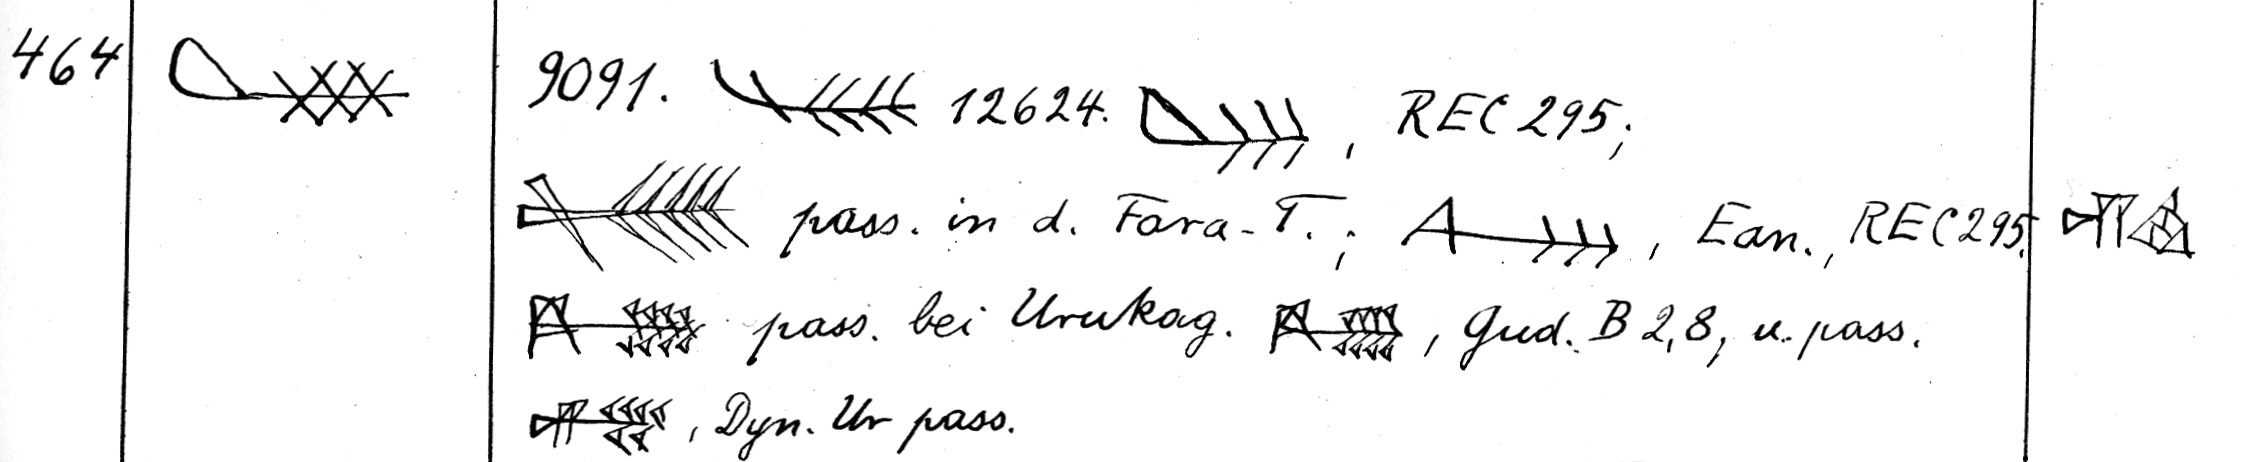 464 9091. 12624. , REC 295;
pass. in d. Fara-T.; , Ean., REC 295.
pass. bei Urukag. , Gud. B 2,8, u. pass.
, Dyn. Ur pass.